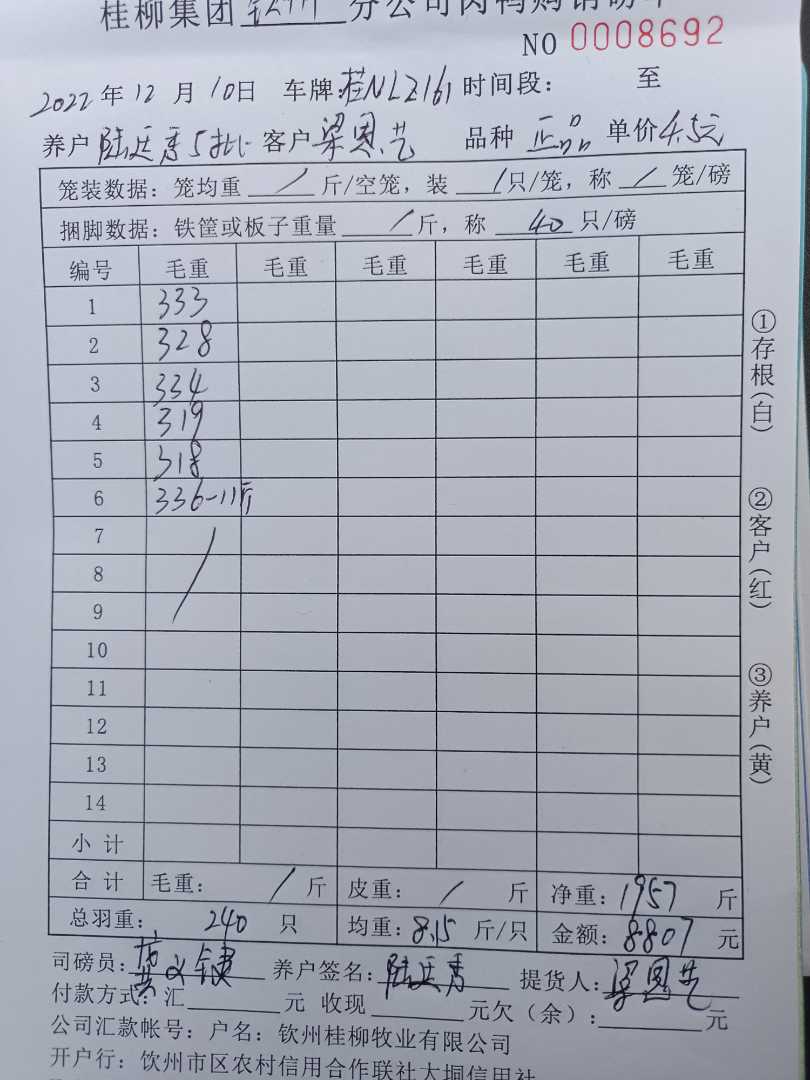 桂柳集团 钦州 分公司肉鸭购销磅单
NO 0008692
2022年12月10日 车牌:桂NLZ161 时间段: 至
养户 陆廷秀5批 客户 梁恩艺 品种 正品 单价4.5元
笼装数据:笼均重 / 斤/空笼,装 / 只/笼,称 / 笼/磅
捆脚数据:铁筐或板子重量 / 斤,称 40 只/磅
编号 毛重 毛重 毛重 毛重 毛重 毛重
1 333
2 328
3 334
4 319
5 318
6 336-11斤
7
8
9
10
11
12
13
14
小计
合计 毛重: / 斤 皮重: / 斤 净重:1957 斤
总羽重: 240 只 均重:8.15 斤/只 金额:8807 元
司磅员: 养户签名:陆廷秀 提货人:梁恩艺
付款方式:汇 元 收现 元欠(余): 元
公司汇款帐号:户名:钦州桂柳牧业有限公司
开户行:饮州市区农村信用合作联社大垌信用社
①存根(白)
②客户(红)
③养户(黄)